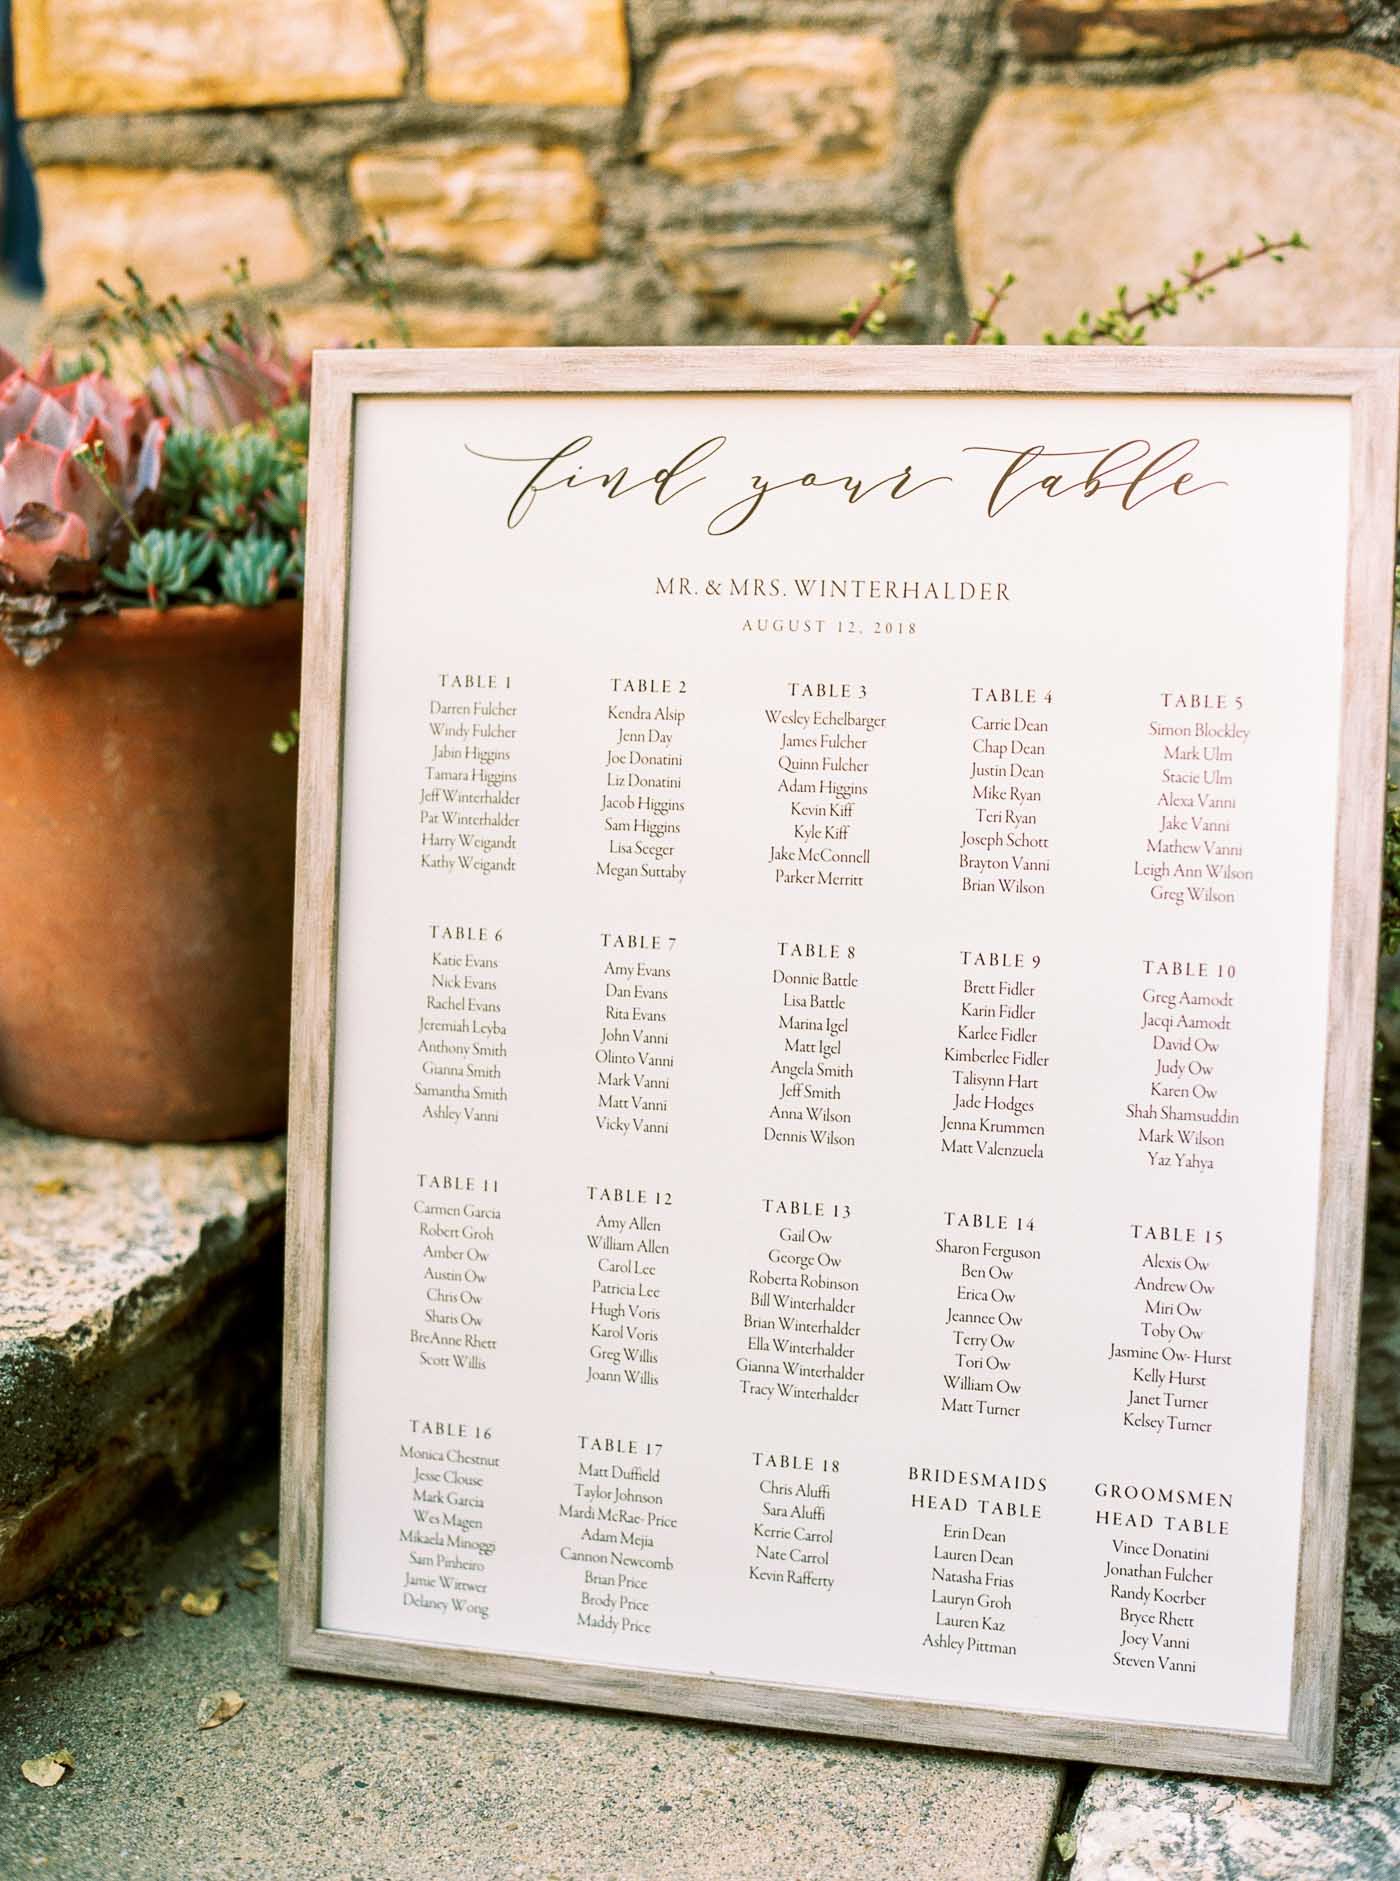 find your table
MR. & MRS. WINTERHALDER
AUGUST 12, 2018
TABLE 1
Darren Fulcher
Windy Fulcher
Jabin Higgins
Tamara Higgins
Jeff Winterhalder
Pat Winterhalder
Harry Weigandt
Kathy Weigandt
TABLE 2
Kendra Alsip
Jenn Day
Joe Donatini
Liz Donatini
Jacob Higgins
Sam Higgins
Lisa Seeger
Megan Suttaby
TABLE 3
Wesley Echelbarger
James Fulcher
Quinn Fulcher
Adam Higgins
Kevin Kiff
Kyle Kiff
Jake McConnell
Parker Merritt
TABLE 4
Carrie Dean
Chap Dean
Justin Dean
Mike Ryan
Teri Ryan
Joseph Schott
Brayton Vanni
Brian Wilson
TABLE 5
Simon Blockley
Mark Ulm
Stacie Ulm
Alexa Vanni
Jake Vanni
Mathew Vanni
Leigh Ann Wilson
Greg Wilson
TABLE 6
Katie Evans
Nick Evans
Rachel Evans
Jeremiah Leyba
Anthony Smith
Gianna Smith
Samantha Smith
Ashley Vanni
TABLE 7
Amy Evans
Dan Evans
Rita Evans
John Vanni
Olinto Vanni
Mark Vanni
Matt Vanni
Vicky Vanni
TABLE 8
Donnie Battle
Lisa Battle
Marina Igel
Matt Igel
Angela Smith
Jeff Smith
Anna Wilson
Dennis Wilson
TABLE 9
Brett Fidler
Karin Fidler
Karlee Fidler
Kimberlee Fidler
Talisynn Hart
Jade Hodges
Jenna Krummen
Matt Valenzuela
TABLE 10
Greg Aamodt
Jacqi Aamodt
David Ow
Judy Ow
Karen Ow
Shah Shamsuddin
Mark Wilson
Yaz Yahya
TABLE 11
Carmen Garcia
Robert Groh
Amber Ow
Austin Ow
Chris Ow
Sharis Ow
BreAnne Rhett
Scott Willis
TABLE 12
Amy Allen
William Allen
Carol Lee
Patricia Lee
Hugh Voris
Karol Voris
Greg Willis
Joann Willis
TABLE 13
Gail Ow
George Ow
Roberta Robinson
Bill Winterhalder
Brian Winterhalder
Ella Winterhalder
Gianna Winterhalder
Tracy Winterhalder
TABLE 14
Sharon Ferguson
Ben Ow
Erica Ow
Jeannee Ow
Terry Ow
Tori Ow
William Ow
Matt Turner
TABLE 15
Alexis Ow
Andrew Ow
Miri Ow
Toby Ow
Jasmine Ow- Hurst
Kelly Hurst
Janet Turner
Kelsey Turner
TABLE 16
Monica Chestnut
Jesse Clouse
Mark Garcia
Wes Magen
Mikaela Minoggi
Sam Pinheiro
Jamie Wittwer
Delaney Wong
TABLE 17
Matt Duffield
Taylor Johnson
Mardi McRae- Price
Adam Mejia
Cannon Newcomb
Brian Price
Brody Price
Maddy Price
TABLE 18
Chris Aluffi
Sara Aluffi
Kerrie Carrol
Nate Carrol
Kevin Rafferty
BRIDESMAIDS
HEAD TABLE
Erin Dean
Lauren Dean
Natasha Frias
Lauryn Groh
Lauren Kaz
Ashley Pittman
GROOMSMEN
HEAD TABLE
Vince Donatini
Jonathan Fulcher
Randy Koerber
Bryce Rhett
Joey Vanni
Steven Vanni